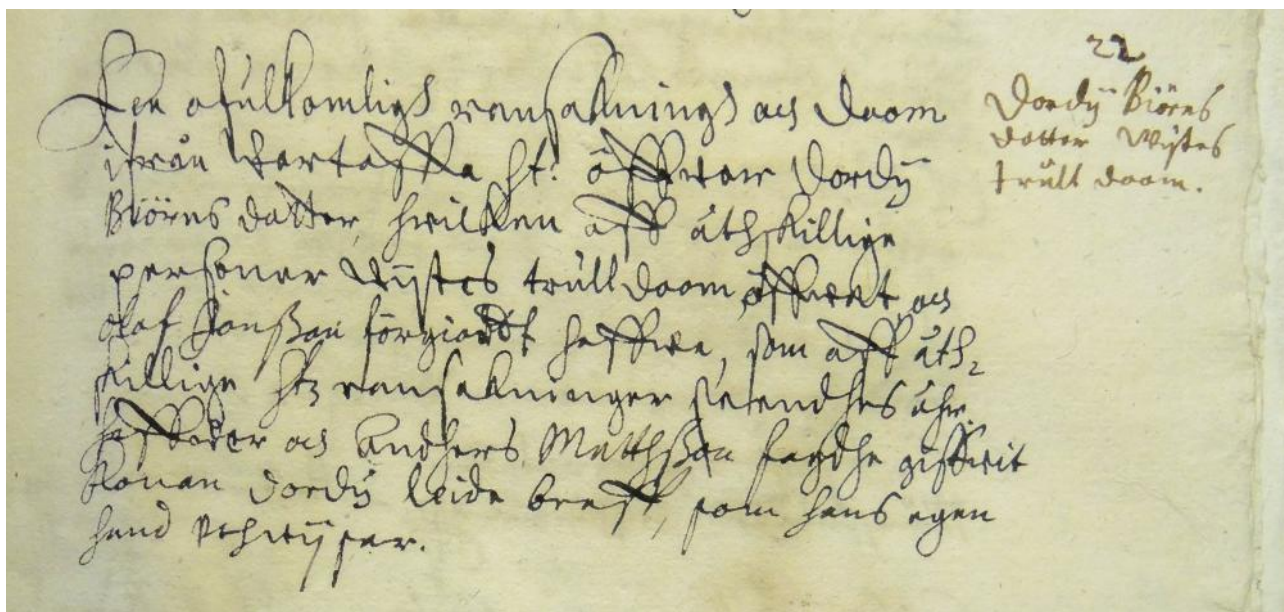 Een ofulkomligh ransakningh och doom
ifrån ht: öffwer Dordij
Biörns datter, hwilken aff åthskillige
personer wijstes trulldoom öffwat och
Olaf Jonsson förgiordt haffwe, som aff åth-
skillige htz ransakninger
och Andhers Matthsson gifwit
Konan Dordij leide breff, som hans egen
hand uthwijser.
22
Dordij Biörns
datter Wijtes
trulldoom.